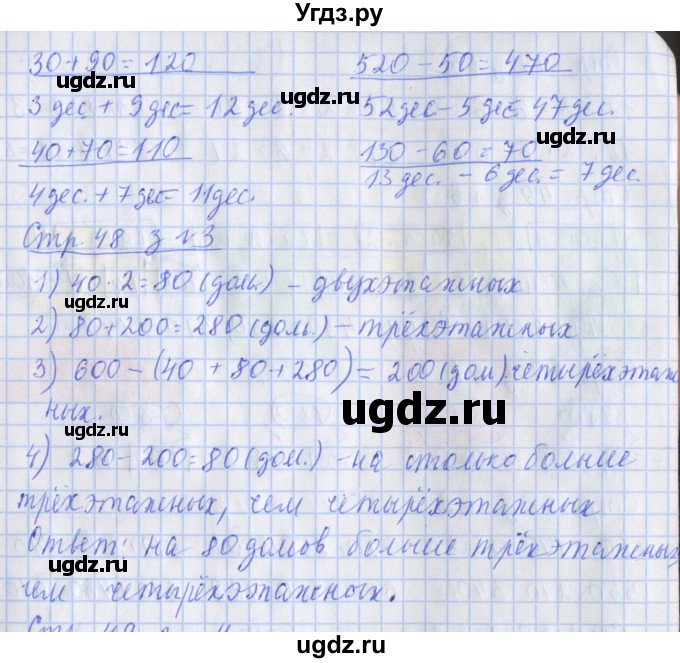 Угдз.ру
30+90=120
520-50=470
3 дес + 9 дес = 12 дес.
52 дес - 5 дес = 47 дес.
40+70=110
130-60=70
4 дес. + 7 дес = 11 дес.
13 дес. - 6 дес. = 7 дес.
Стр. 48 з №3
1) 40·2=80 (дом.) - двухэтажных
2) 80+200=280 (дом.) - трёхэтажных
3) 600-(40+80+280)=200 (дом) четырёхэтаж
ных.
4) 280-200=80 (дом.) - на столько больше
трёхэтажных, чем четырёхэтажных
Ответ: на 80 домов больше трёхэтажных,
чем четырёхэтажных.
ugdz.ru
ugdz.ru
ugdz.ru
ugdz.ru
ugdz.ru
ugdz.ru
ugdz.ru
ugdz.ru
ugdz.ru
ugdz.ru
ugdz.ru